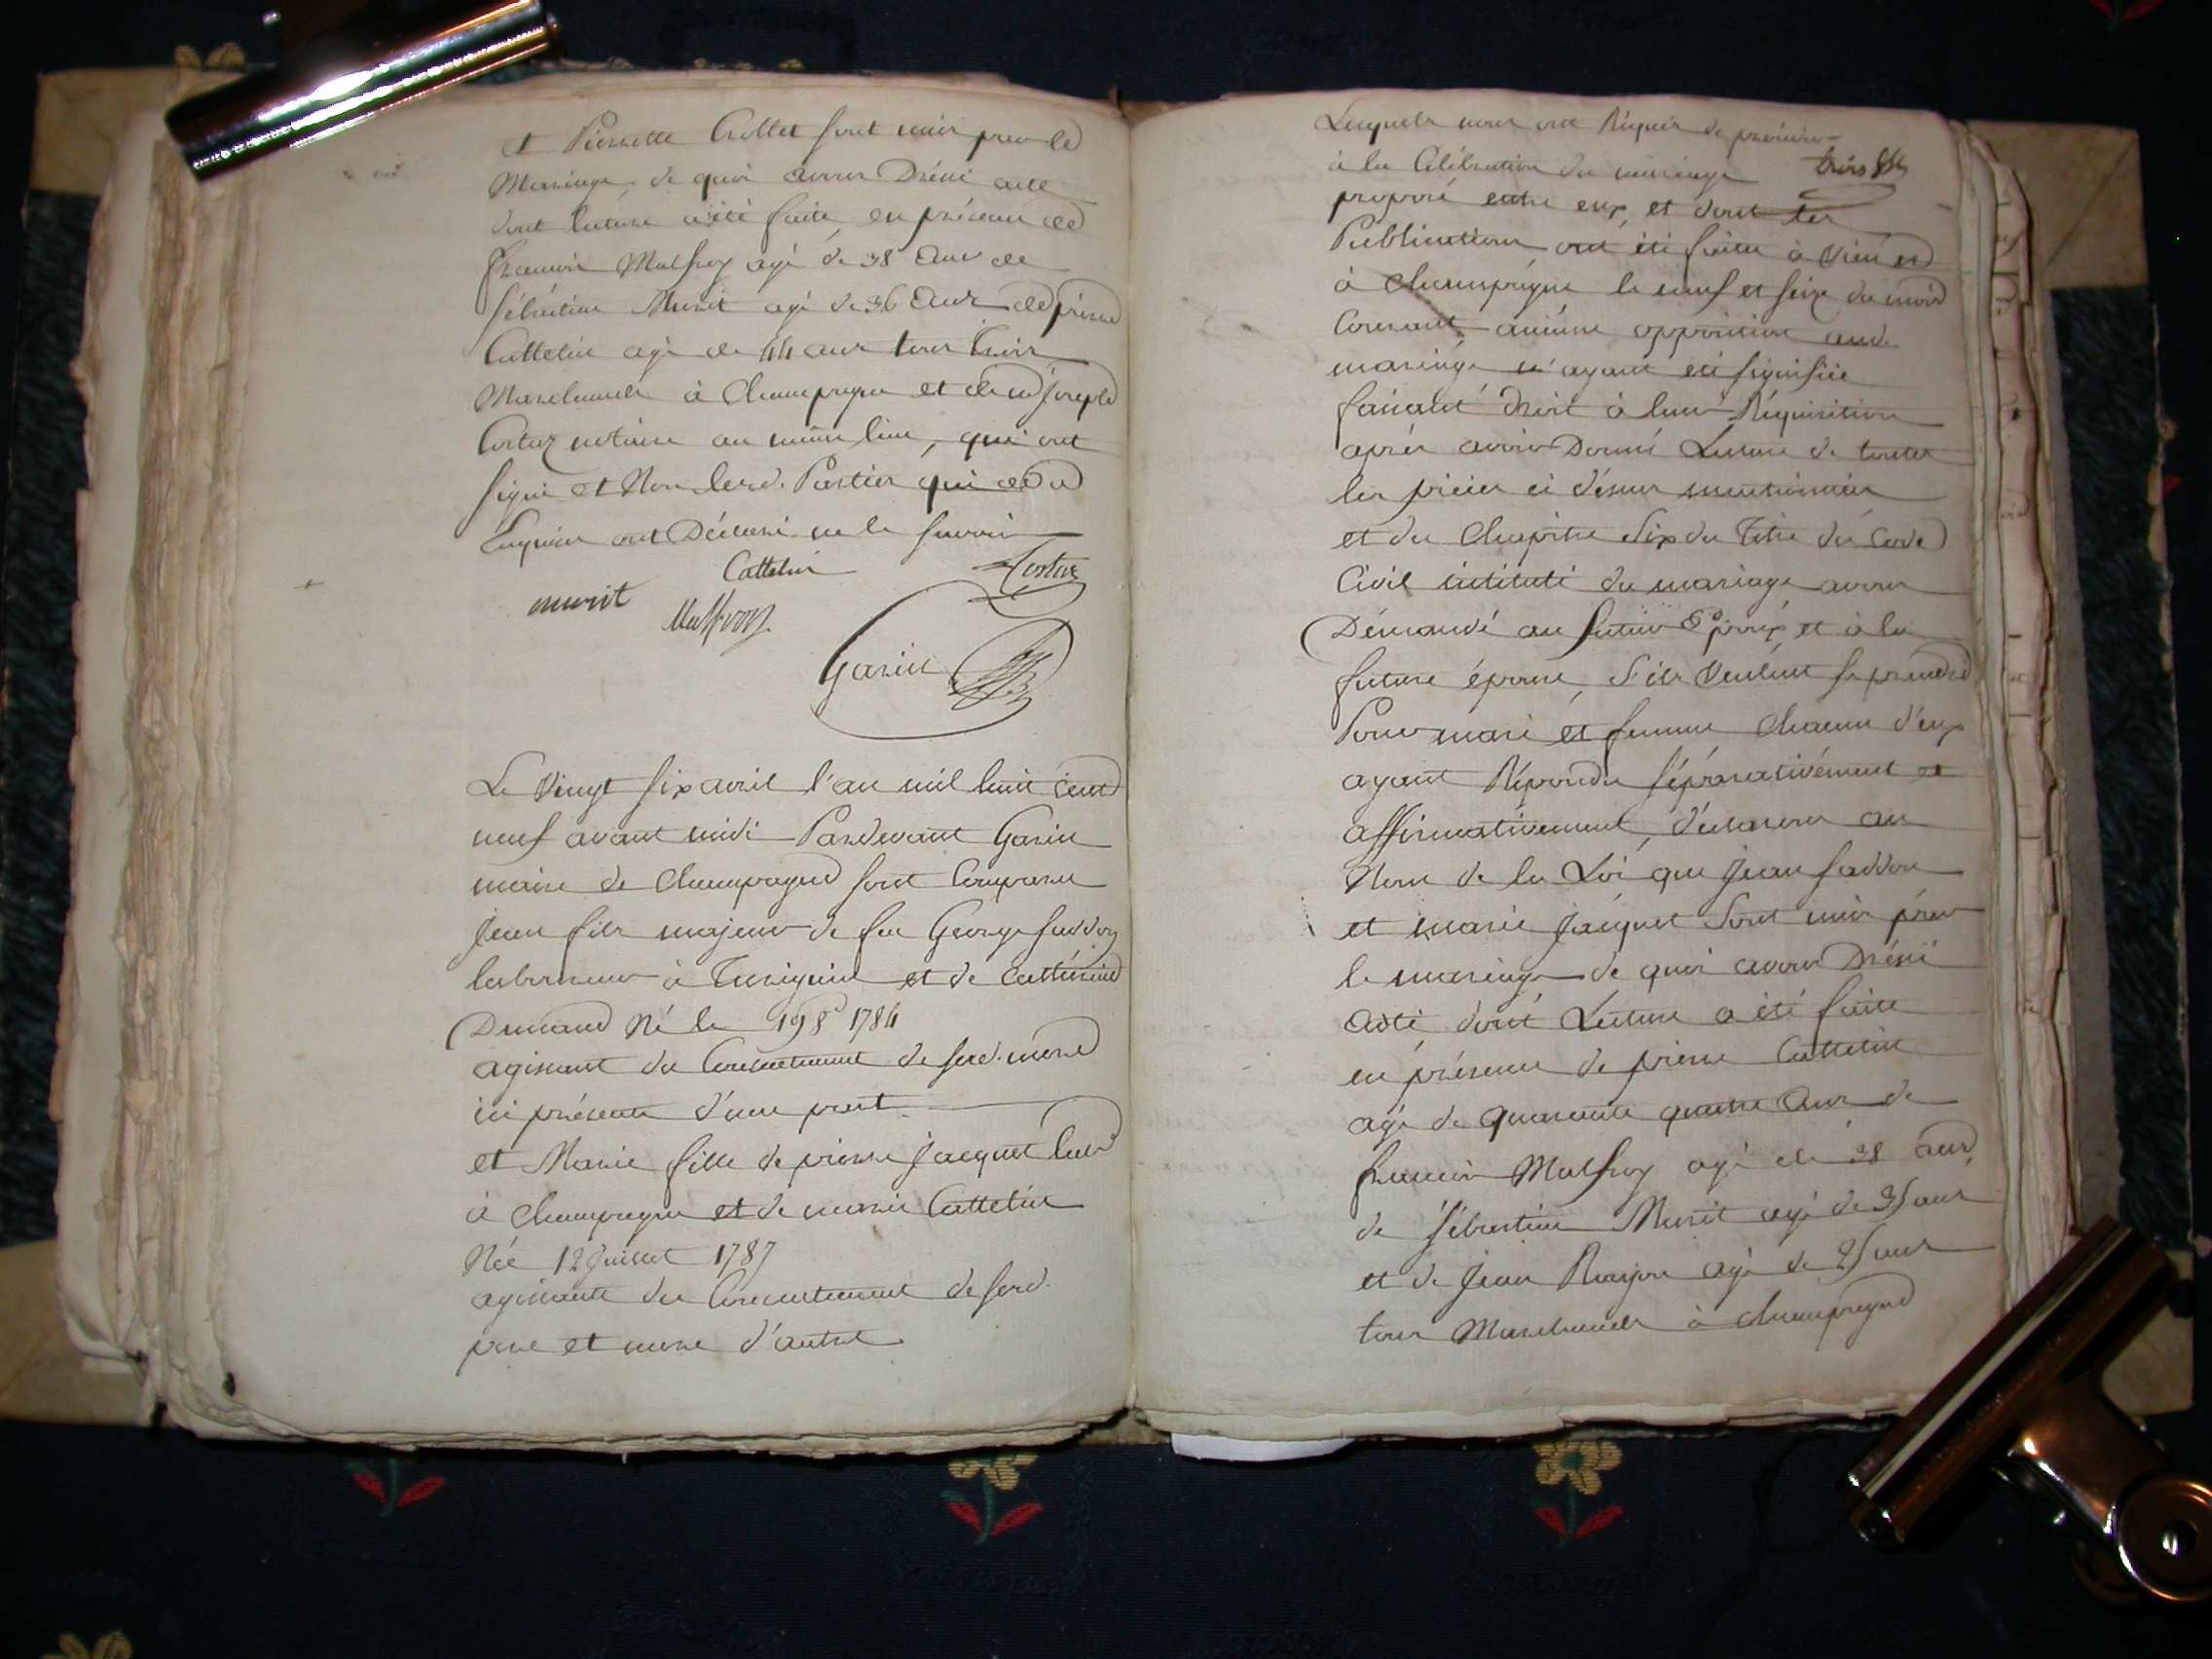 et Pierrette Chollet sont unis par le
Mariage, de quoi avons Dréssé acte
dont lecture a été faite, en présence de
françois Malfroy agé de 38 ans de
sébastien Muzit agé de 36 ans de pierre
Cattelin agé de 44 ans tous trois
Marchands à Champagne et de joseph
Costaz notaire au même lieu, qui ont
signé et Non lesd. Parties qui de ce
Enquises ont Déclaré ne le savoir
Cattelin Costaz
muzit Malfroy
Garin
Le Vingt six avril l'an mil huit cent
neuf avant midi Pardevant Garin
maire de Champagne sont Comparus
jean fils majeur de feu George faddon
laboureur à et de Cattérine
Dumand Né le 19 8e 1784
agissant du Consentement de sad. mere
ici présente d'une part.
et Marie fille de pierre jacquet labr
à Champagne et de marie Cattelin
Née 12 juillet 1787
agissante du Consentement de sesd.
pere et mere d'autre
Lesquels nous ont Réquis de procéder
à la Célébration du mariage trois
proposé entre eux, et dont les
Publications ont été faites à Vieu et
à Champagne le neuf et seize du mois
Courant aucune opposition aud.
mariage n'ayant été signifiée
faisant droit à leur Réquisition
après avoir Donné Lecture de toutes
les pièces ci déssus mentionnées
et du Chapitre Six du Titre du Code
Civil intitulé du mariage avons
Démandé au futur Epoux et à la
future épouse, s'ils Veulent se prendre
Pour mari et femme Chacun d'eux
ayant Répondu séparativément et
affirmativement, déclarons au
Nom de la Loi que jean faddon
et marie jacquet Sont unis par
le mariage de quoi avons Dréssé
acte, dont Lecture a été faite
en présence de pierre Cattelin
agé de quarante quatre ans de
françois Malfroy agé de 38 ans,
de sébastien Muzit agé de 35 ans
et de jean agé de 25 ans
tous Marchands à Champagne